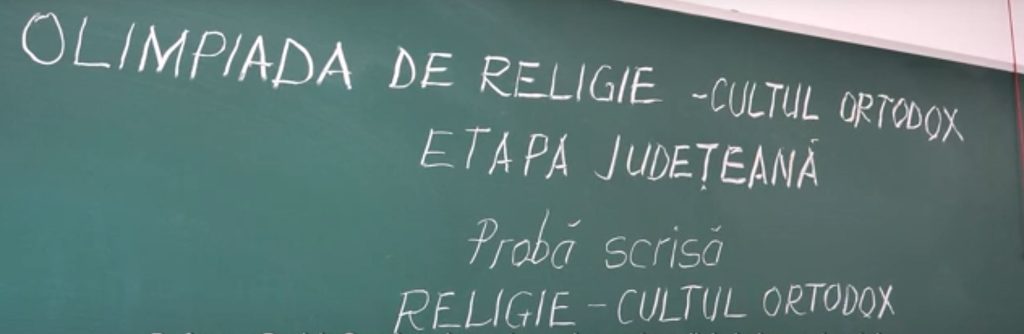 OLIMPIADA DE RELIGIE - CULTUL ORTODOX
ETAPA JUDEȚEANĂ
Probă scrisă
RELIGIE - CULTUL ORTODOX